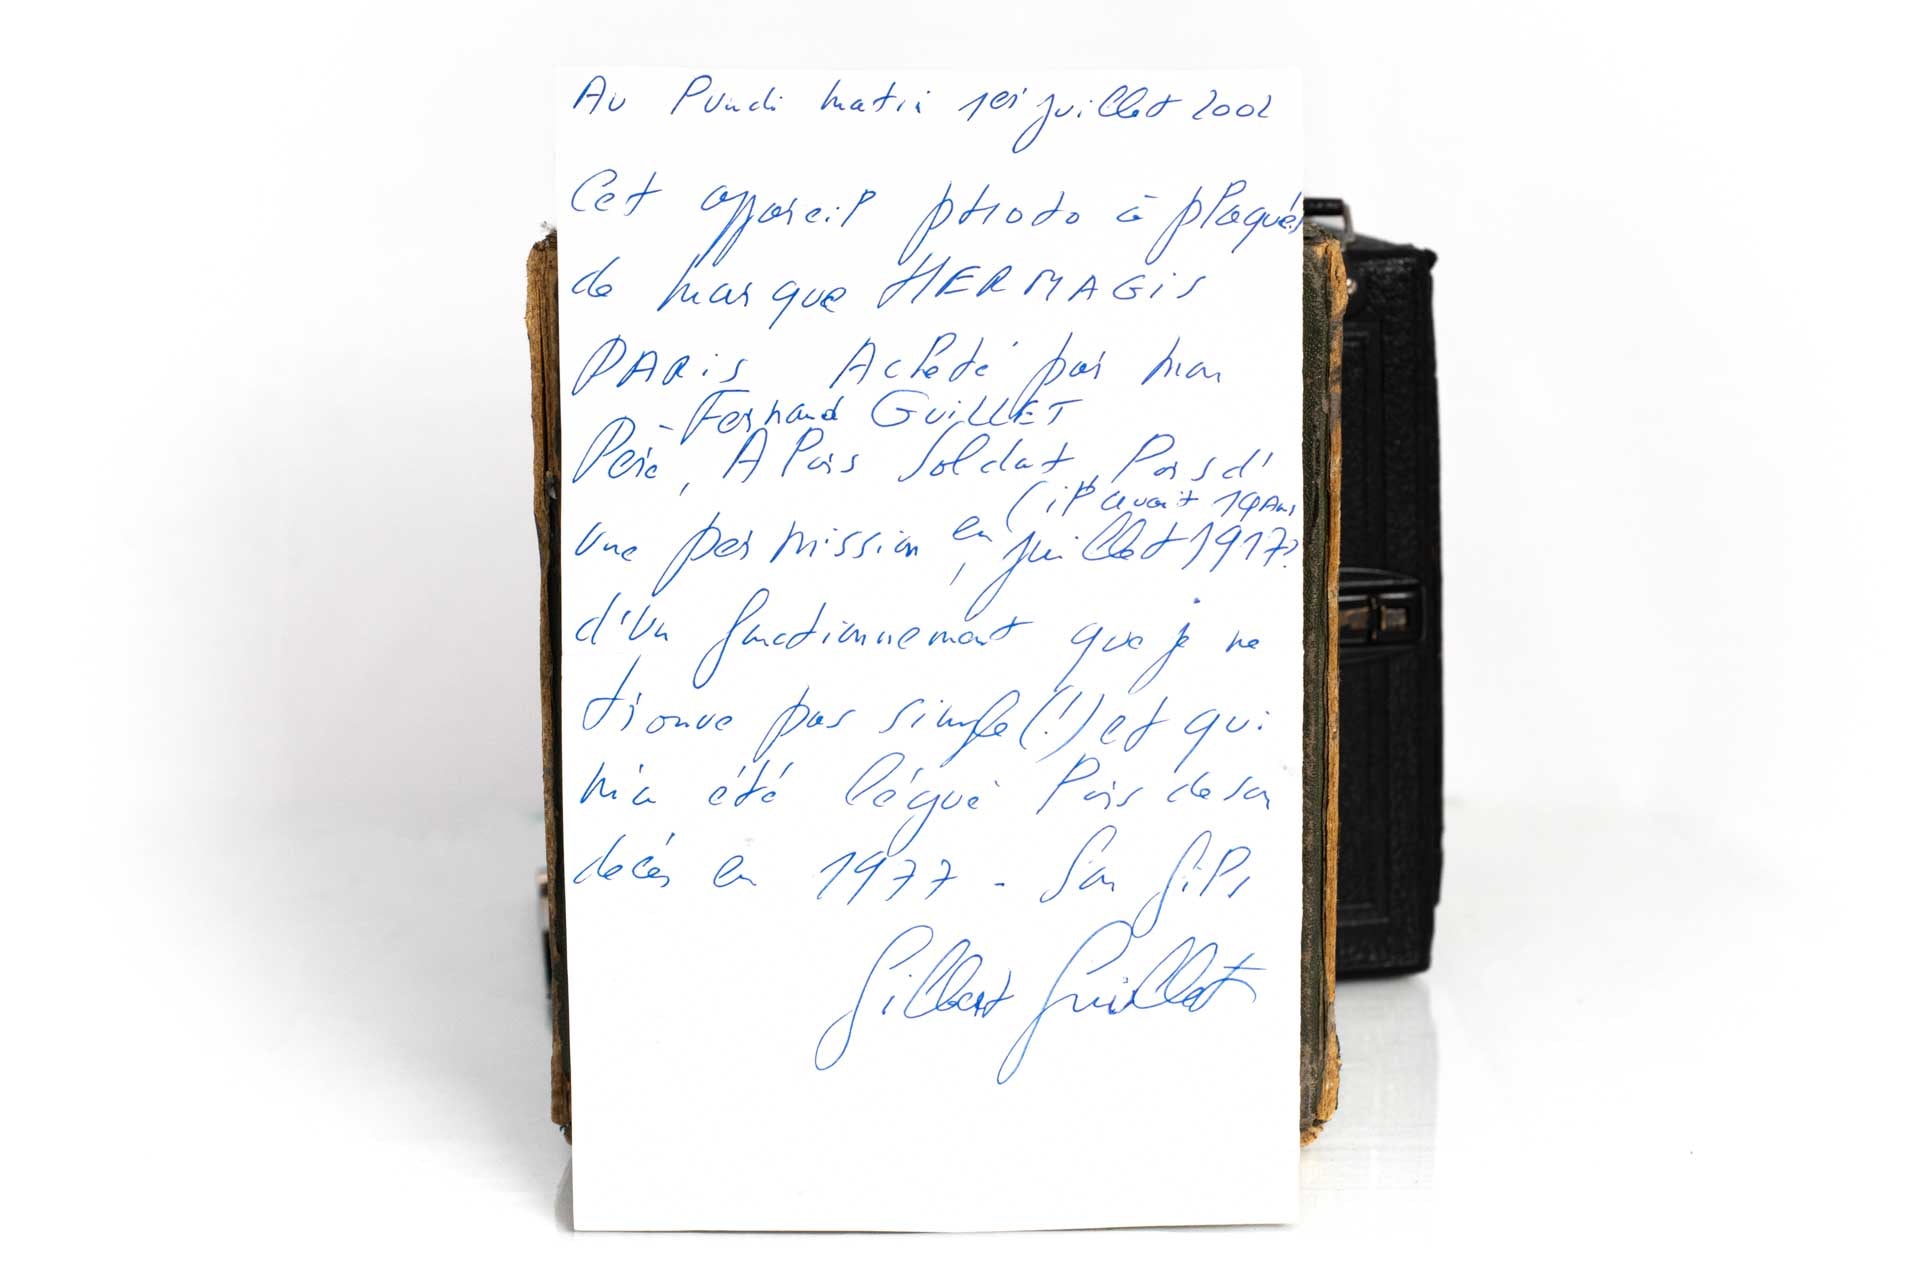 Au Lundi matin 1er juillet 2002
Cet appareil photo à plaques
de marque HERMAGIS
PARIS Acheté par mon
- Fernand GUILLET
Père, Alors Soldat, lors d'
(il avait 19 Ans
une permission, en juillet 1917)
d'un fonctionnement que je ne
trouve pas simple (!) et qui
m'a été légué lors de son
décés en 1977 - Son fils
Gilbert Guillet